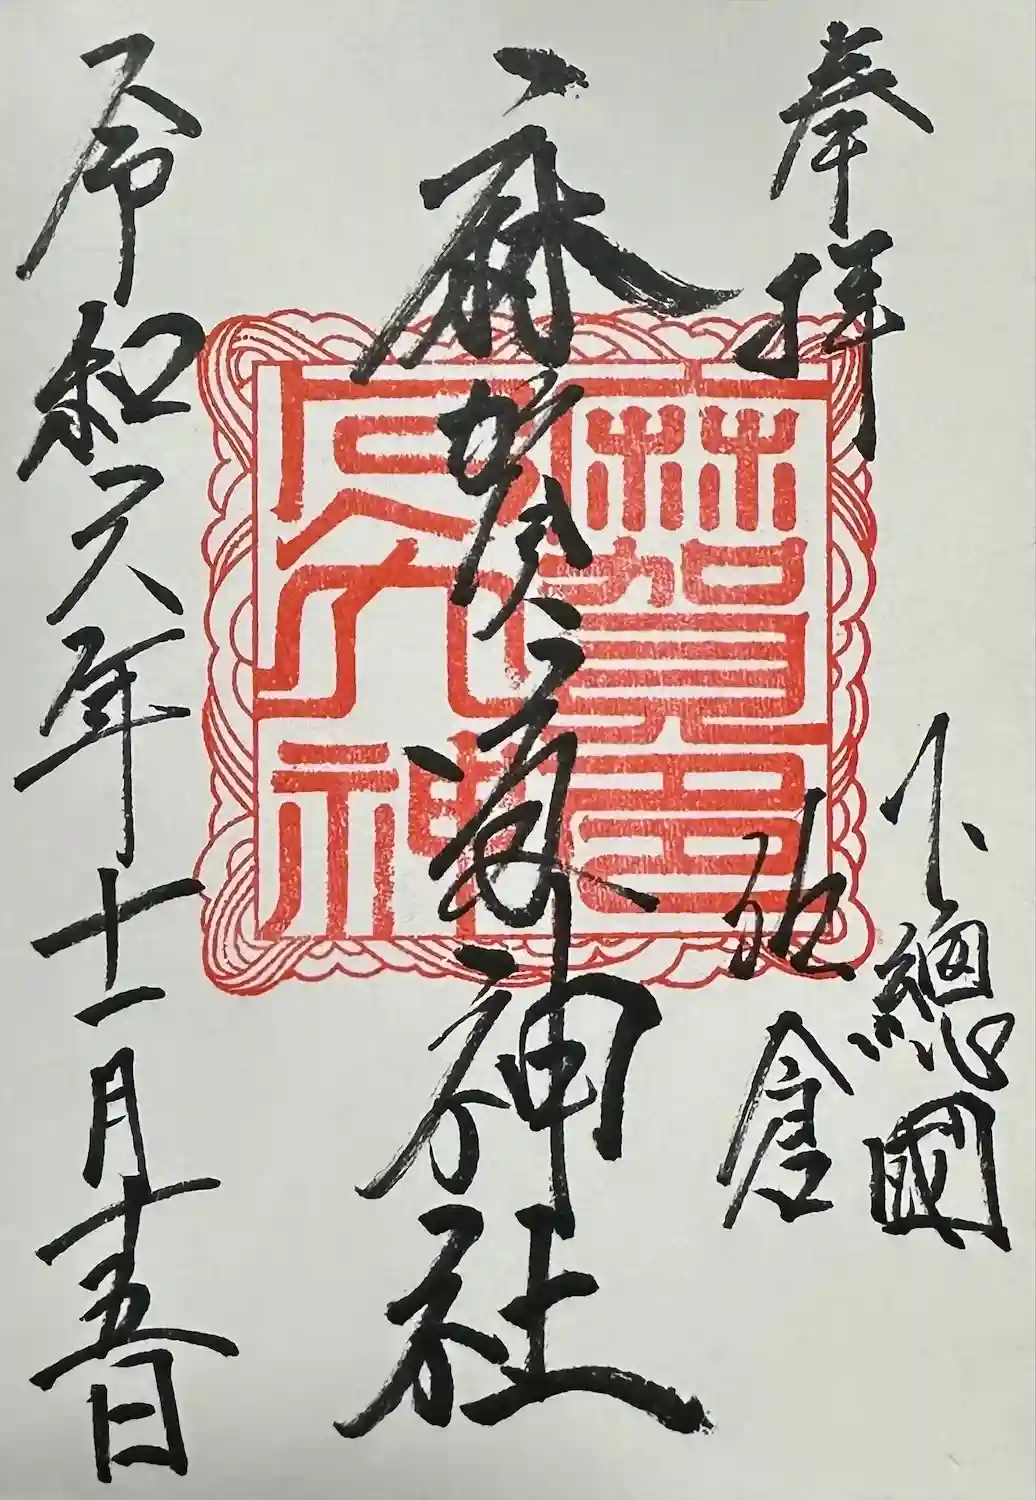 奉拝
下總國
佐倉
麻賀多神社
令和六年十一月十五日
麻賀多
大神